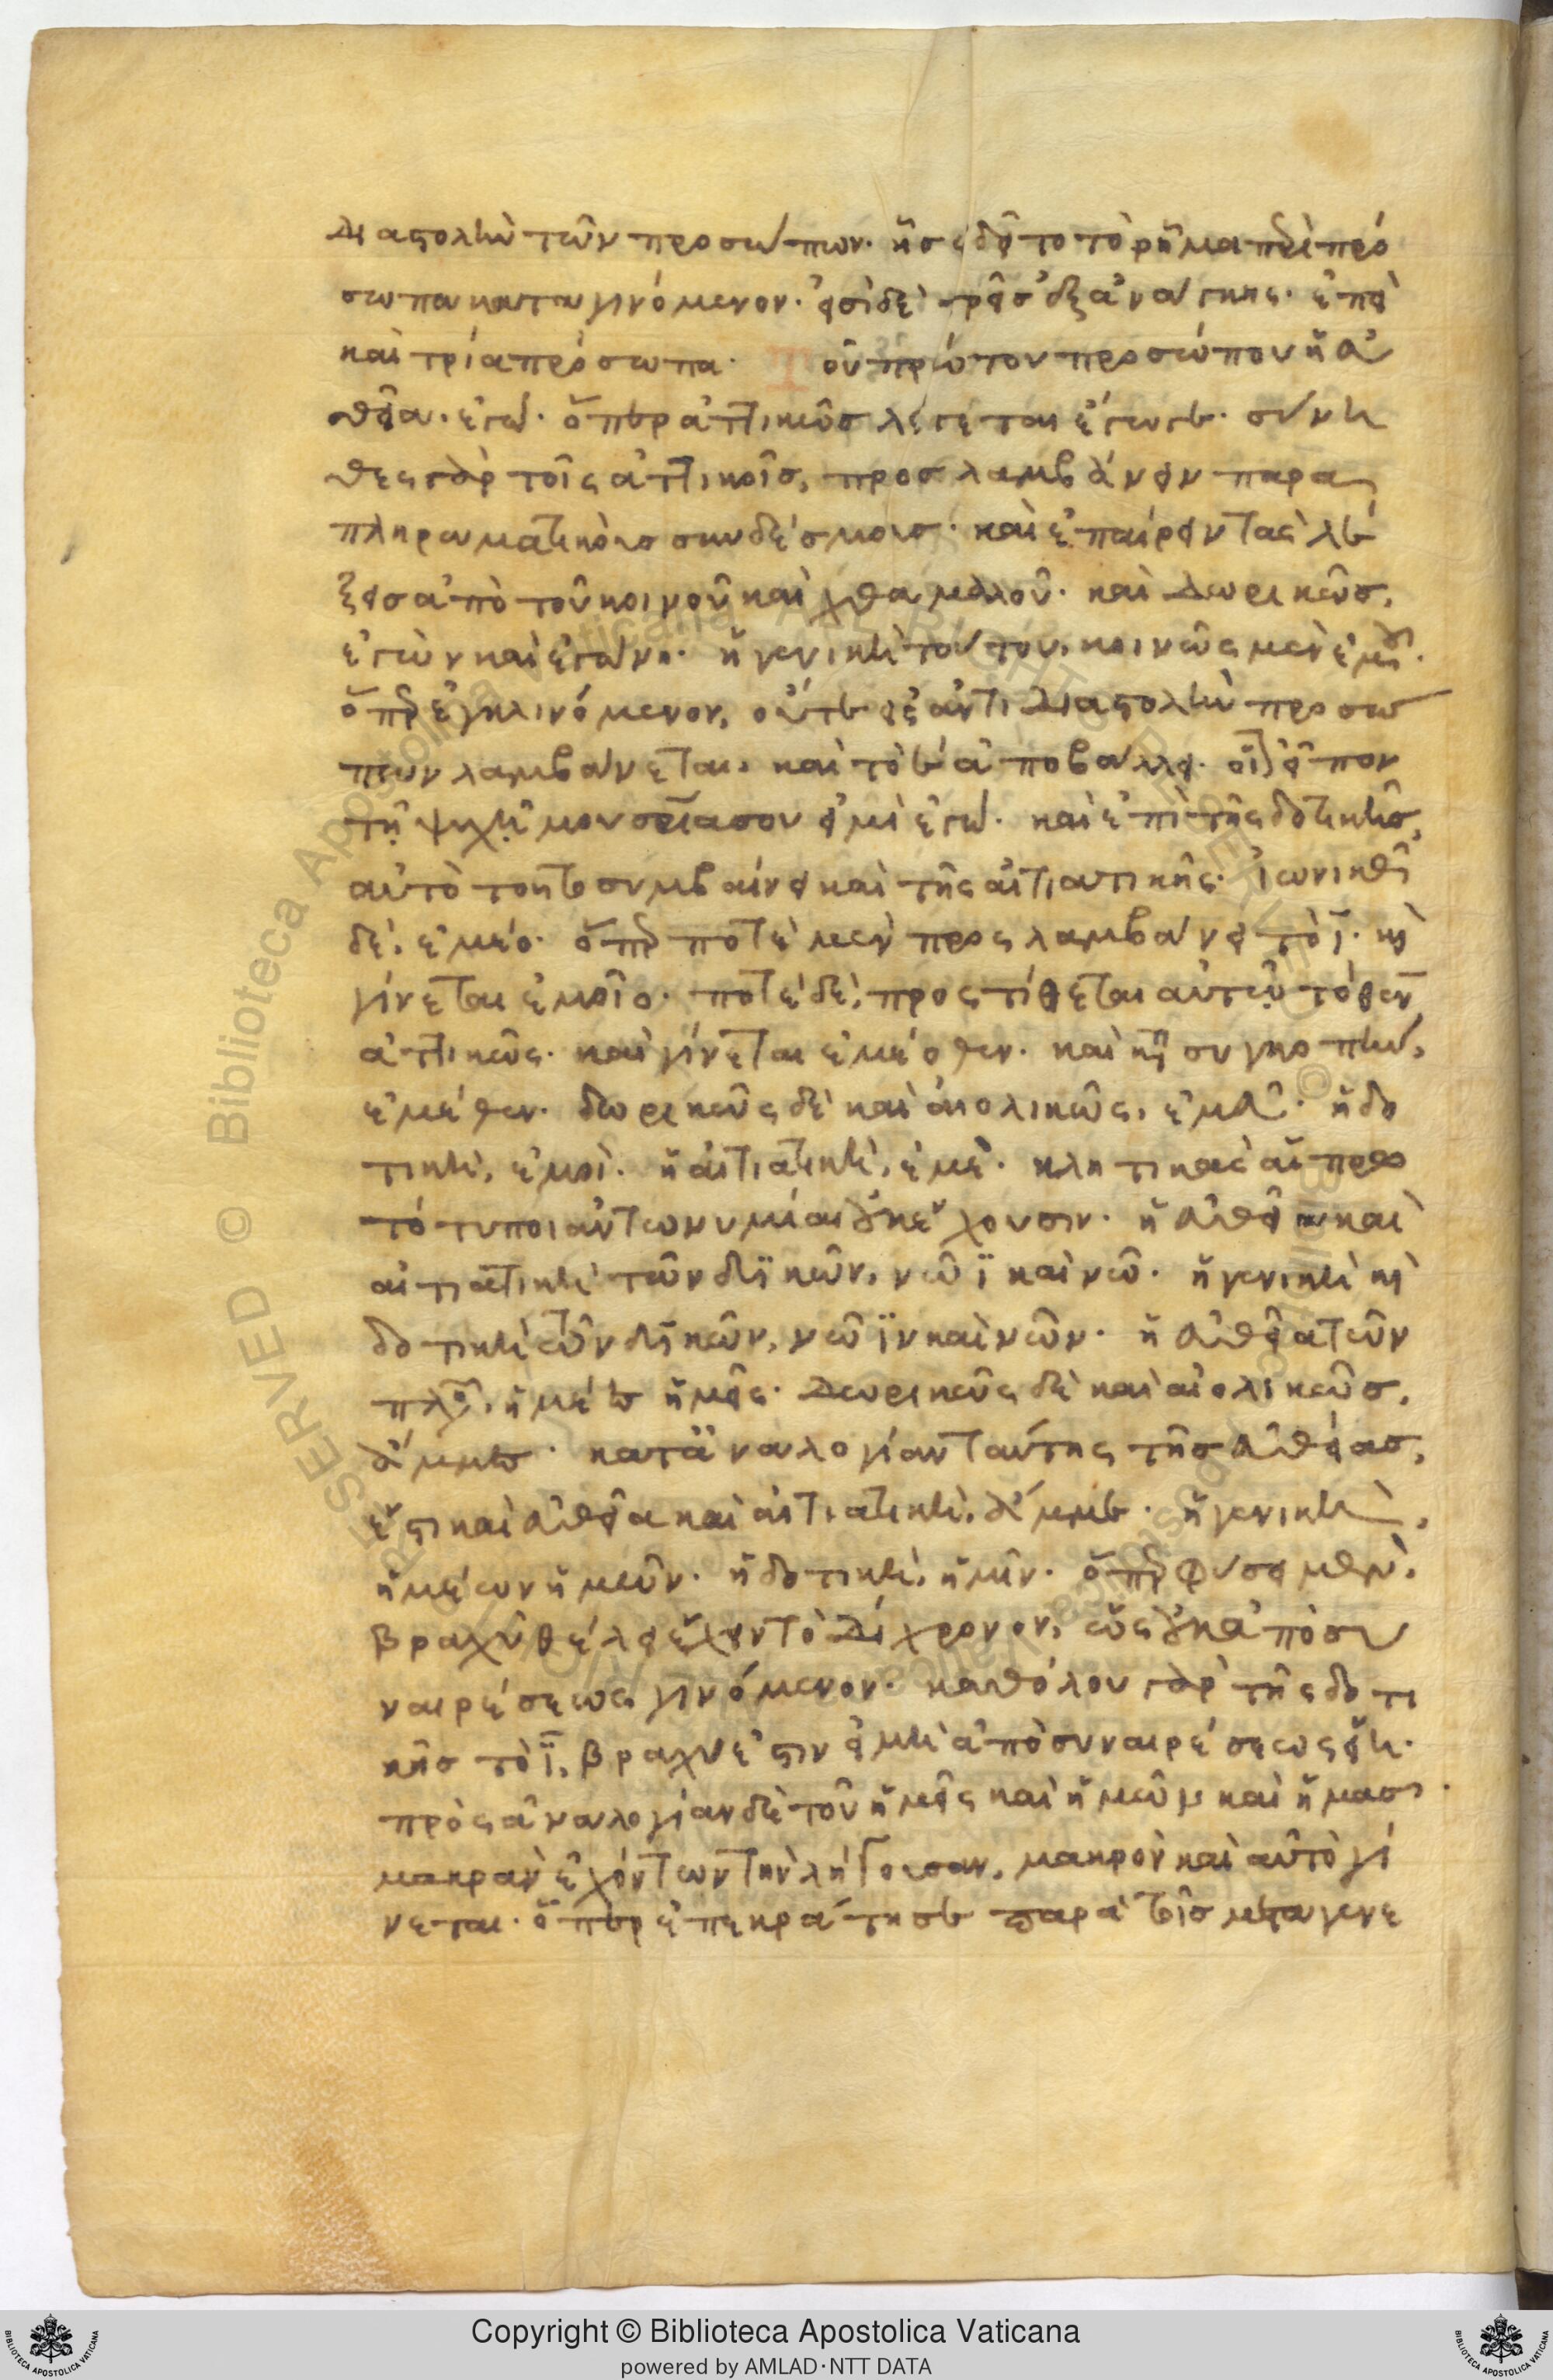 διαστολὴν τῶν προσώπων. ἧς ἐδεῖτο τὸ ῥῆμα περὶ πρό
σωπα καταγινόμενον. εἰσὶ δὲ τρεῖς ἐξ ἀνάγκης. ἐπεὶ
καὶ τρία πρόσωπα. Τοῦ πρώτου προσώπου ἡ εὐ
θεῖα. ἐγώ. ὅπερ ἀττικῶς λέγεται ἔγωγε. σύνη
θες γὰρ τοῖς ἀττικοῖς, προσλαμβάνειν παρα
πληρωματικοὺς συνδέσμους. καὶ ἐπαίρειν τὰς λέ
ξεις ἀπὸ τοῦ κοινοῦ καὶ χθαμαλοῦ. καὶ δωρικῶς,
ἐγὼν καὶ ἐγώνη. ἡ γενικὴ τούτου, κοινῶς μὲν ἐμοῦ.
ὅπερ ἐγκλινόμενον, οὔτε εἰς ἀντιδιαστολὴν προσώ
πων λαμβάνεται, καὶ τὸ ε ἀποβάλλει. οἷον εἶπον
τῇ ψυχῇ μου σρίασον εἰμὶ ἐγώ. καὶ ἐπὶ τῆς δοτικῆς,
αὐτὸ τοῦτο συμβαίνει καὶ τῆς αἰτιατικῆς. ἰωνικῶς
δὲ, ἐμέο. ὅπερ ποτὲ μὲν προσλαμβάνει τὸ ι. καὶ
γίνεται ἐμοῖο. ποτὲ δὲ, προστίθεται αὐτῷ τὸ θεν
ἀττικῶς. καὶ γίνεται ἐμέοθεν. καὶ κατὰ συγκοπὴν,
ἐμέθεν. δωρικῶς δὲ καὶ αἰολικῶς, ἐμεῦ. ἡ δο
τικὴ, ἐμοὶ. ἡ αἰτιατικὴ, ἐμὲ. κλητικὰς αἱ πρω
τότυποι ἀντωνυμίαι οὐκ ἔχουσιν. ἡ εὐθεῖα καὶ
αἰτιατικὴ τῶν δυϊκῶν, νῶϊ καὶ νῶ. ἡ γενικὴ καὶ
δοτικὴ τῶν δυϊκῶν, νῶϊν καὶ νῶν. ἡ εὐθεῖα τῶν
πληθυντικῶν, ἡμέες ἡμεῖς. δωρικῶς δὲ καὶ αἰολικῶς,
ἄμμες. κατὰ ἀναλογίαν ταύτης τῆς εὐθείας,
ἔστι καὶ εὐθεῖα καὶ αἰτιατικὴ, ἄμμε. ἡ γενικὴ,
ἡμέων ἡμῶν. ἡ δοτικὴ, ἡμῖν. ὅπερ φύσει μὲν,
βραχὺ θέλει ἔχειν τὸ δίχρονον, ὡς οὐκ ἀπὸ συ
ναιρέσεως γινόμενον. καθόλου γὰρ τῆς δοτι
κῆς τὸ ι, βραχύ ἐστιν εἰ μὴ ἀπὸ συναιρέσεως εἴη.
πρὸς ἀναλογίαν δὲ τοῦ ἡμεῖς καὶ ἡμῶν καὶ ἡμᾶς.
μακρὰν ἐχόντων τὴν λήγουσαν, μακρὸν καὶ αὐτὸ γί
νεται. ὅπερ ἐπεκράτησε παρὰ τοῖς μεταγενε